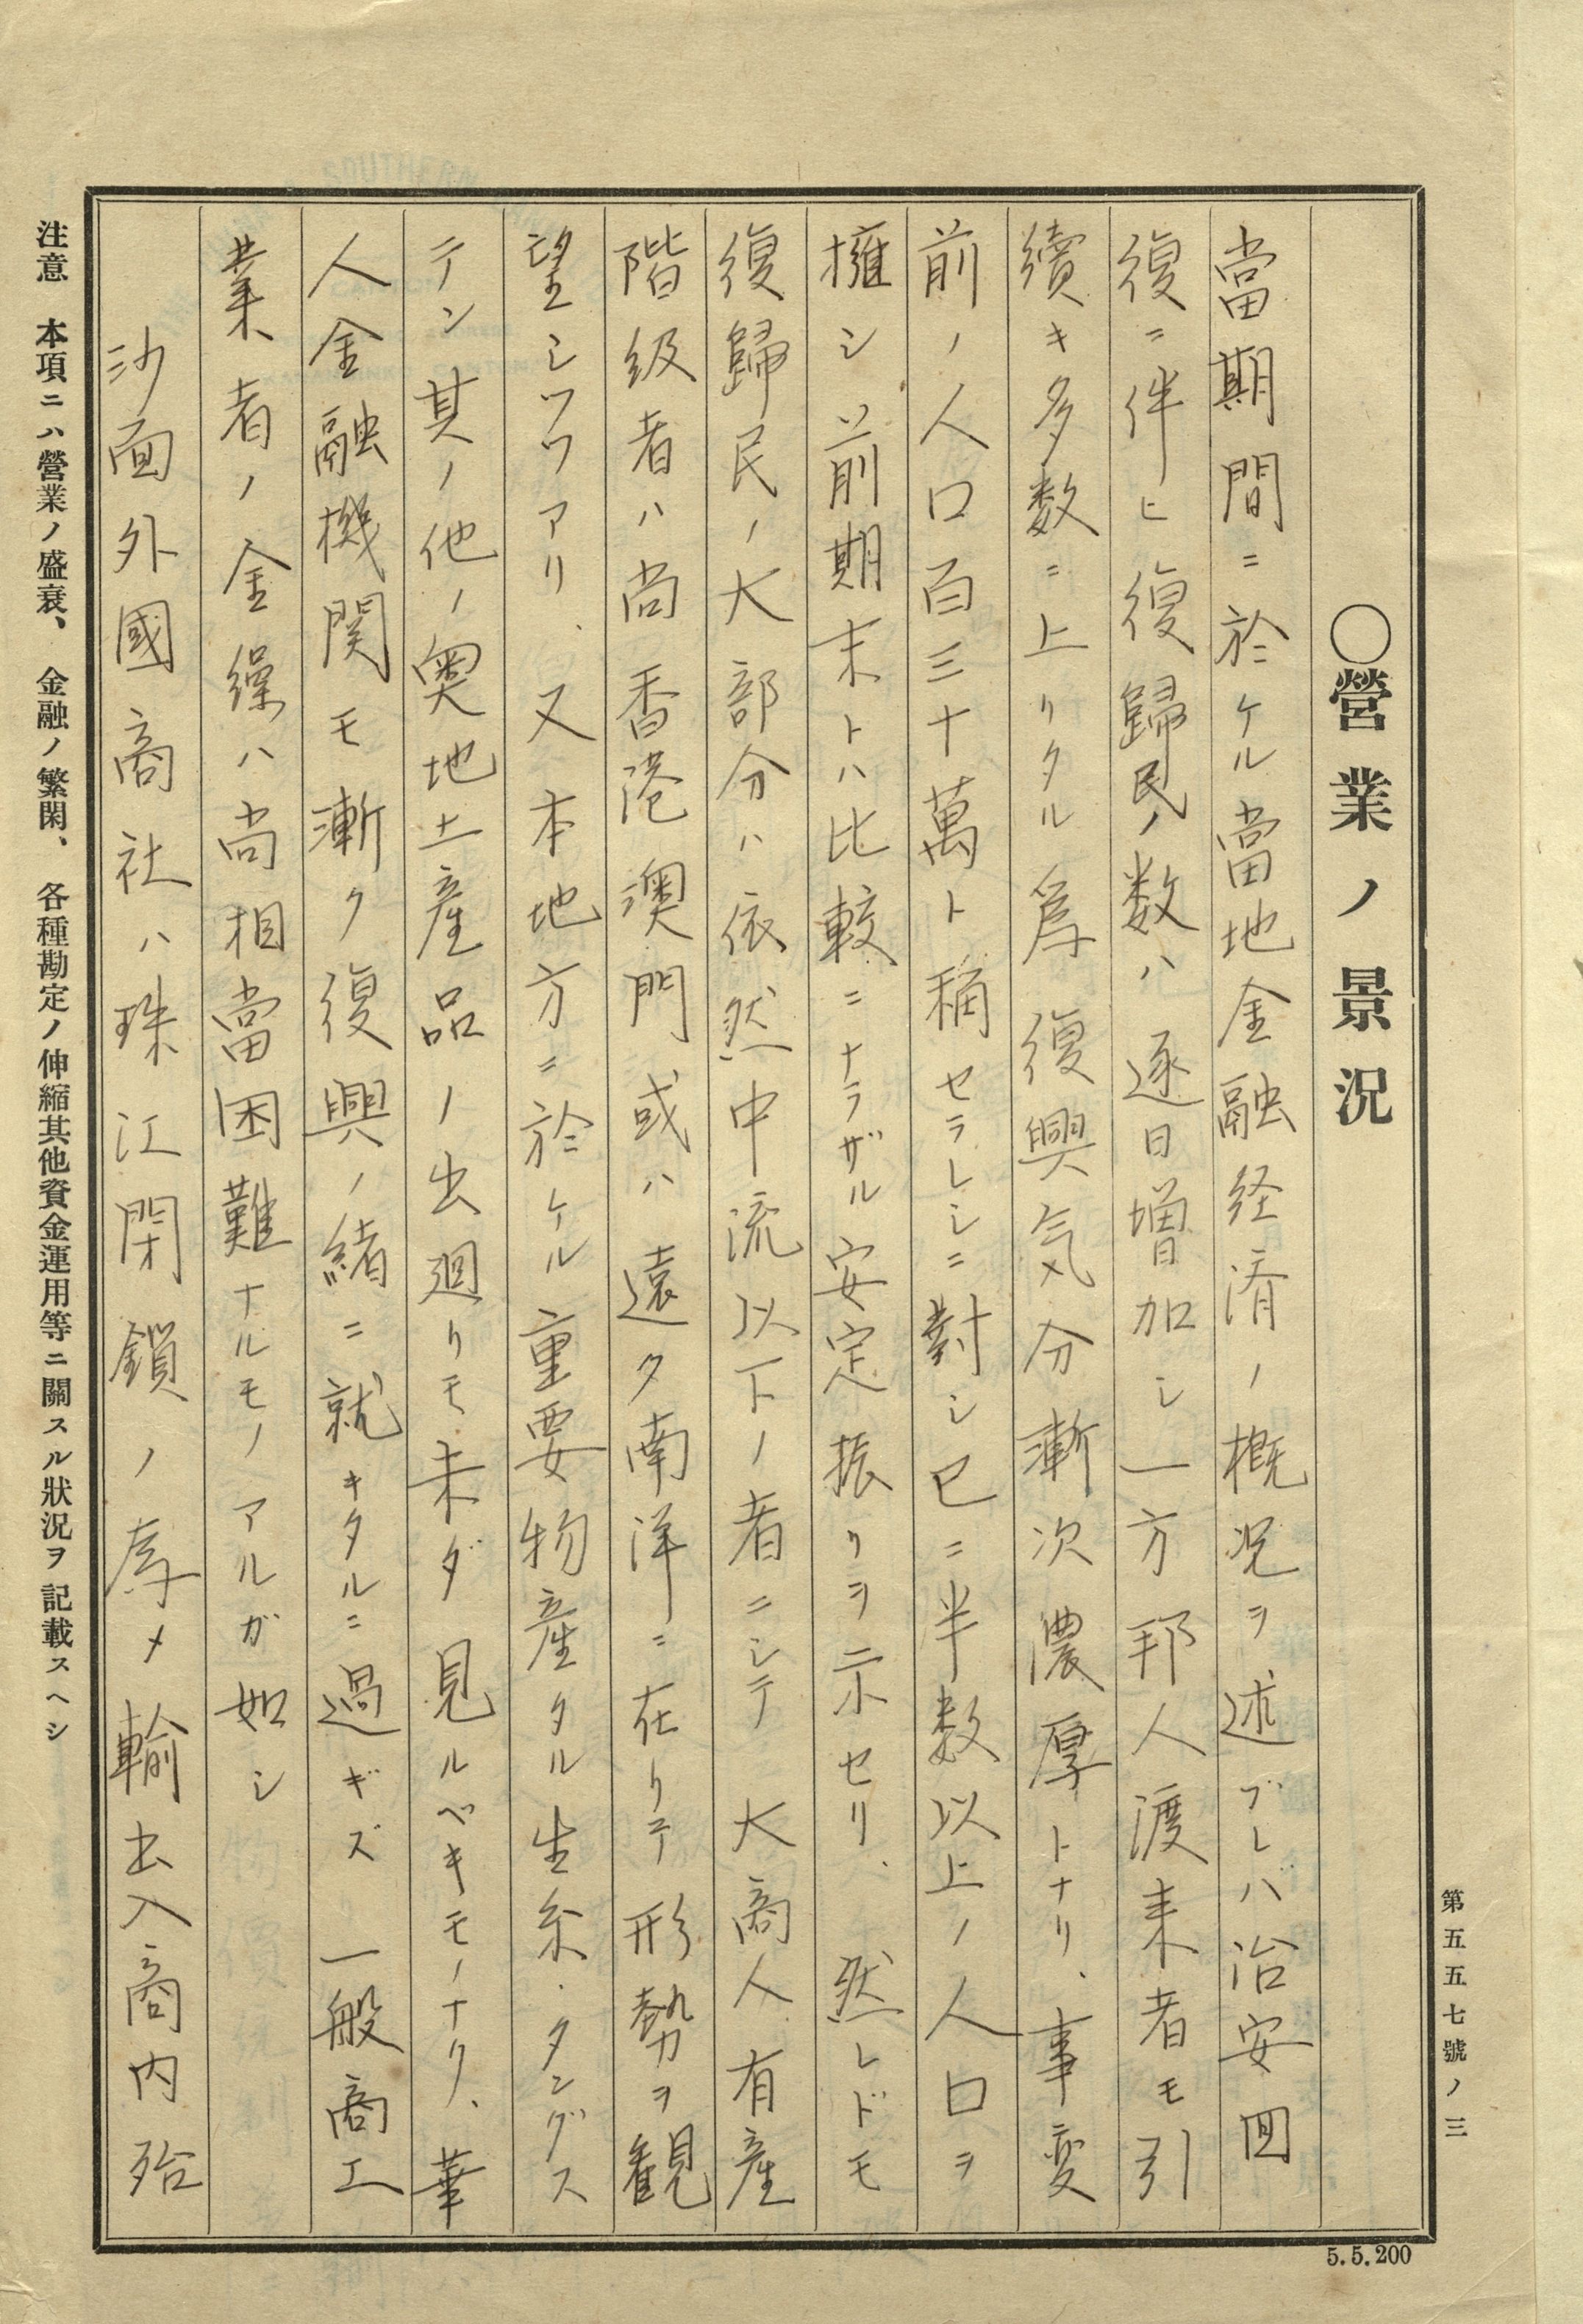 第五五七號ノ三
○營業ノ景況
當期間ニ於ケル當地金融経済ノ概況ヲ述ブレバ治安囬
復ニ伴ヒ復歸民ノ数ハ逐日増加シ一方邦人渡来者モ引
續キ多数ニ上リタル為復興気分漸次濃厚トナリ、事変
前ノ人口百三十萬ト稱セラレシニ對シ已ニ半数以上ノ人口ヲ
擁シ前期末トハ比較ニナラザル安定振リヲ示セリ、然レドモ
復歸民ノ大部分ハ依然中流以下ノ者ニシテ大商人有産
階級者ハ尚香港澳門或ハ遠ク南洋ニ在リテ形勢ヲ観
望シツツアリ、又本地方ニ於ケル重要物産タル生糸、タングス
テン其ノ他ノ奥地土産品ノ出廻リモ未ダ見ルベキモノナク、華
人金融機関モ漸ク復興ノ緒ニ就キタルニ過ギズ一般商工
業者ノ金繰ハ尚相當困難ナルモノアルガ如シ
沙面外國商社ハ珠江閉鎖ノ為メ輸出入商内殆
注意 本項ニハ營業ノ盛衰、金融ノ繁閑、各種勘定ノ伸縮其他資金運用等ニ關スル狀況ヲ記載スヘシ
5.5.200